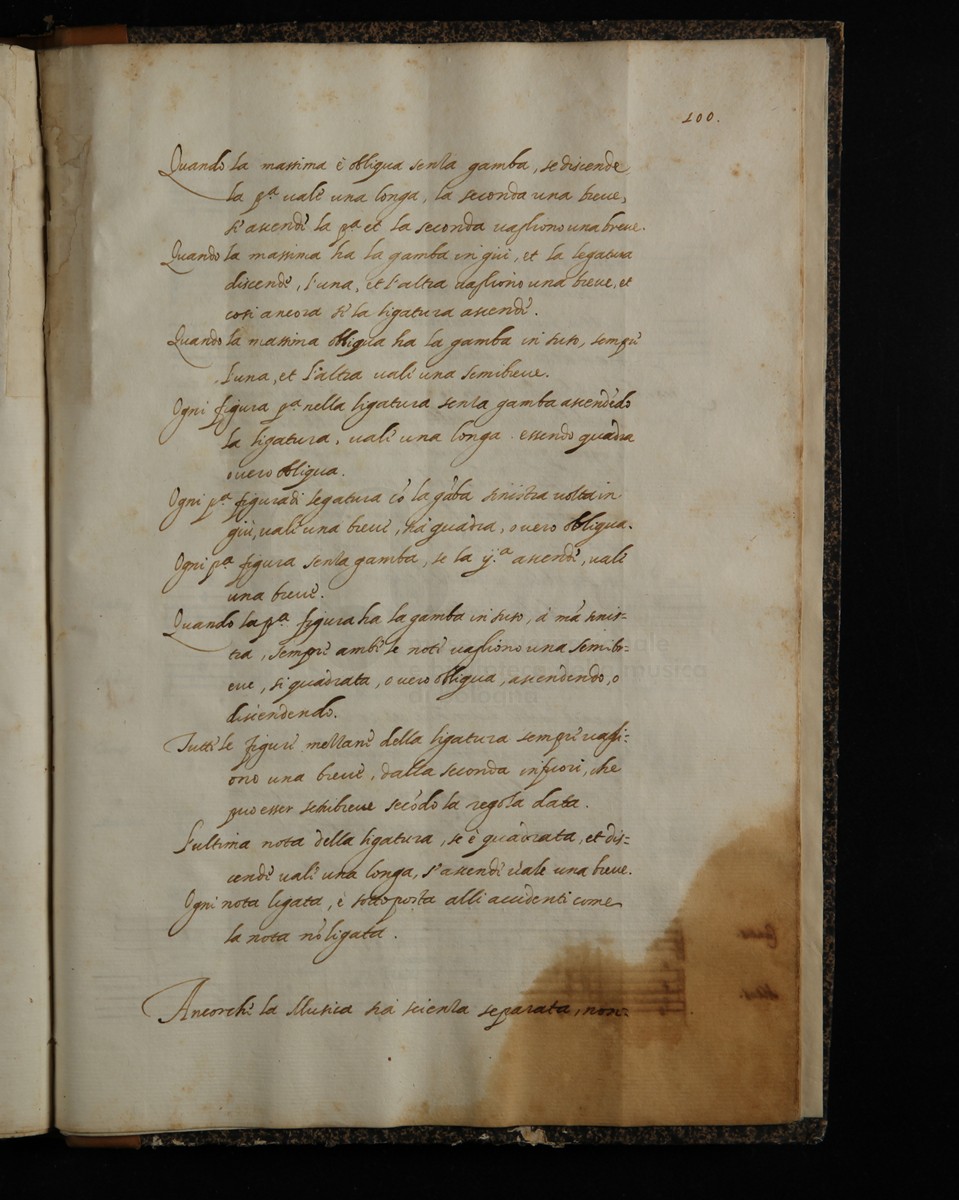 100.
Quando la massima è obliqua senza gamba, se discende
la pª uale una longa, la seconda una breue,
s'ascende la pª et la seconda uagliono una breue.
Quando la massima ha la gamba in giù, et la legatura
discende, l'una, et l'altra uagliono una breue, et
così ancora se la ligatura ascende.
Quando la massima obliqua ha la gamba in suso, sempre
l'una, et l'altra uale una semibreue.
Ogni figura pª nella ligatura senza gamba ascendēdo
la ligatura, uale una longa essendo quadra
ouero obliqua.
Ogni pª figura di legatura cō la gāba sinistra uolta in
giù, uale una breue, sia quadra, ouero obliqua.
Ogni pª figura senza gamba, se la ijª ascende, uale
una breue.
Quando la pª figura ha la gamba in suso, à mā sinis-
tra, sempre ambe le note uagliono una semibr-
eue, si quadrata, ouero obliqua, ascendendo, o
discendendo.
Tutte le figure mezzane della ligatura sempre uagli-
ono una breue, dalla seconda infuori, che
può esser semibreue secōdo la regola data.
L'ultima nota della ligatura, se è quadrata, et dis-
cende uale una longa, s'ascende uale una breue.
Ogni nota ligata, è sottoposta alli accidenti come
la nota nō ligata.
Ancorche la Musica sia scienza separata, non-